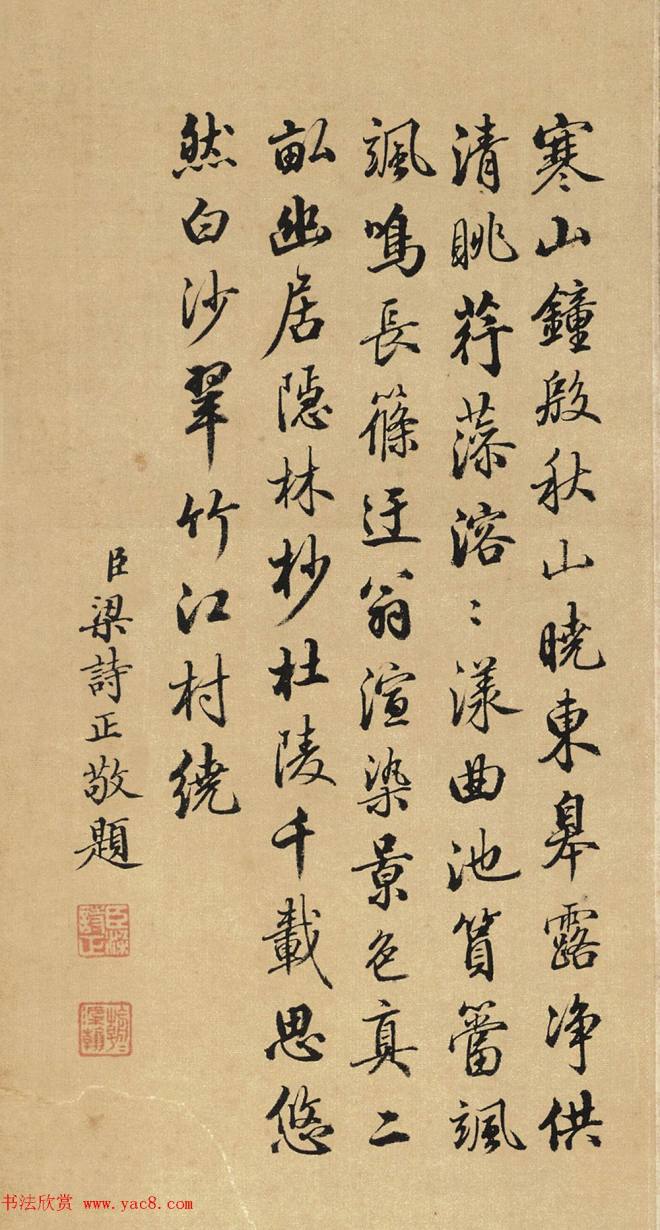 寒山鐘殷秋山曉東皋露净供
清眺荇藻溶〻漾曲池篔簹颯
颯鳴長篠迂翁渲染景色真二
畝幽居隱林杪杜陵千載思悠
然白沙翠竹江村繞
臣梁詩正敬題
书法欣赏 www.yac8.com